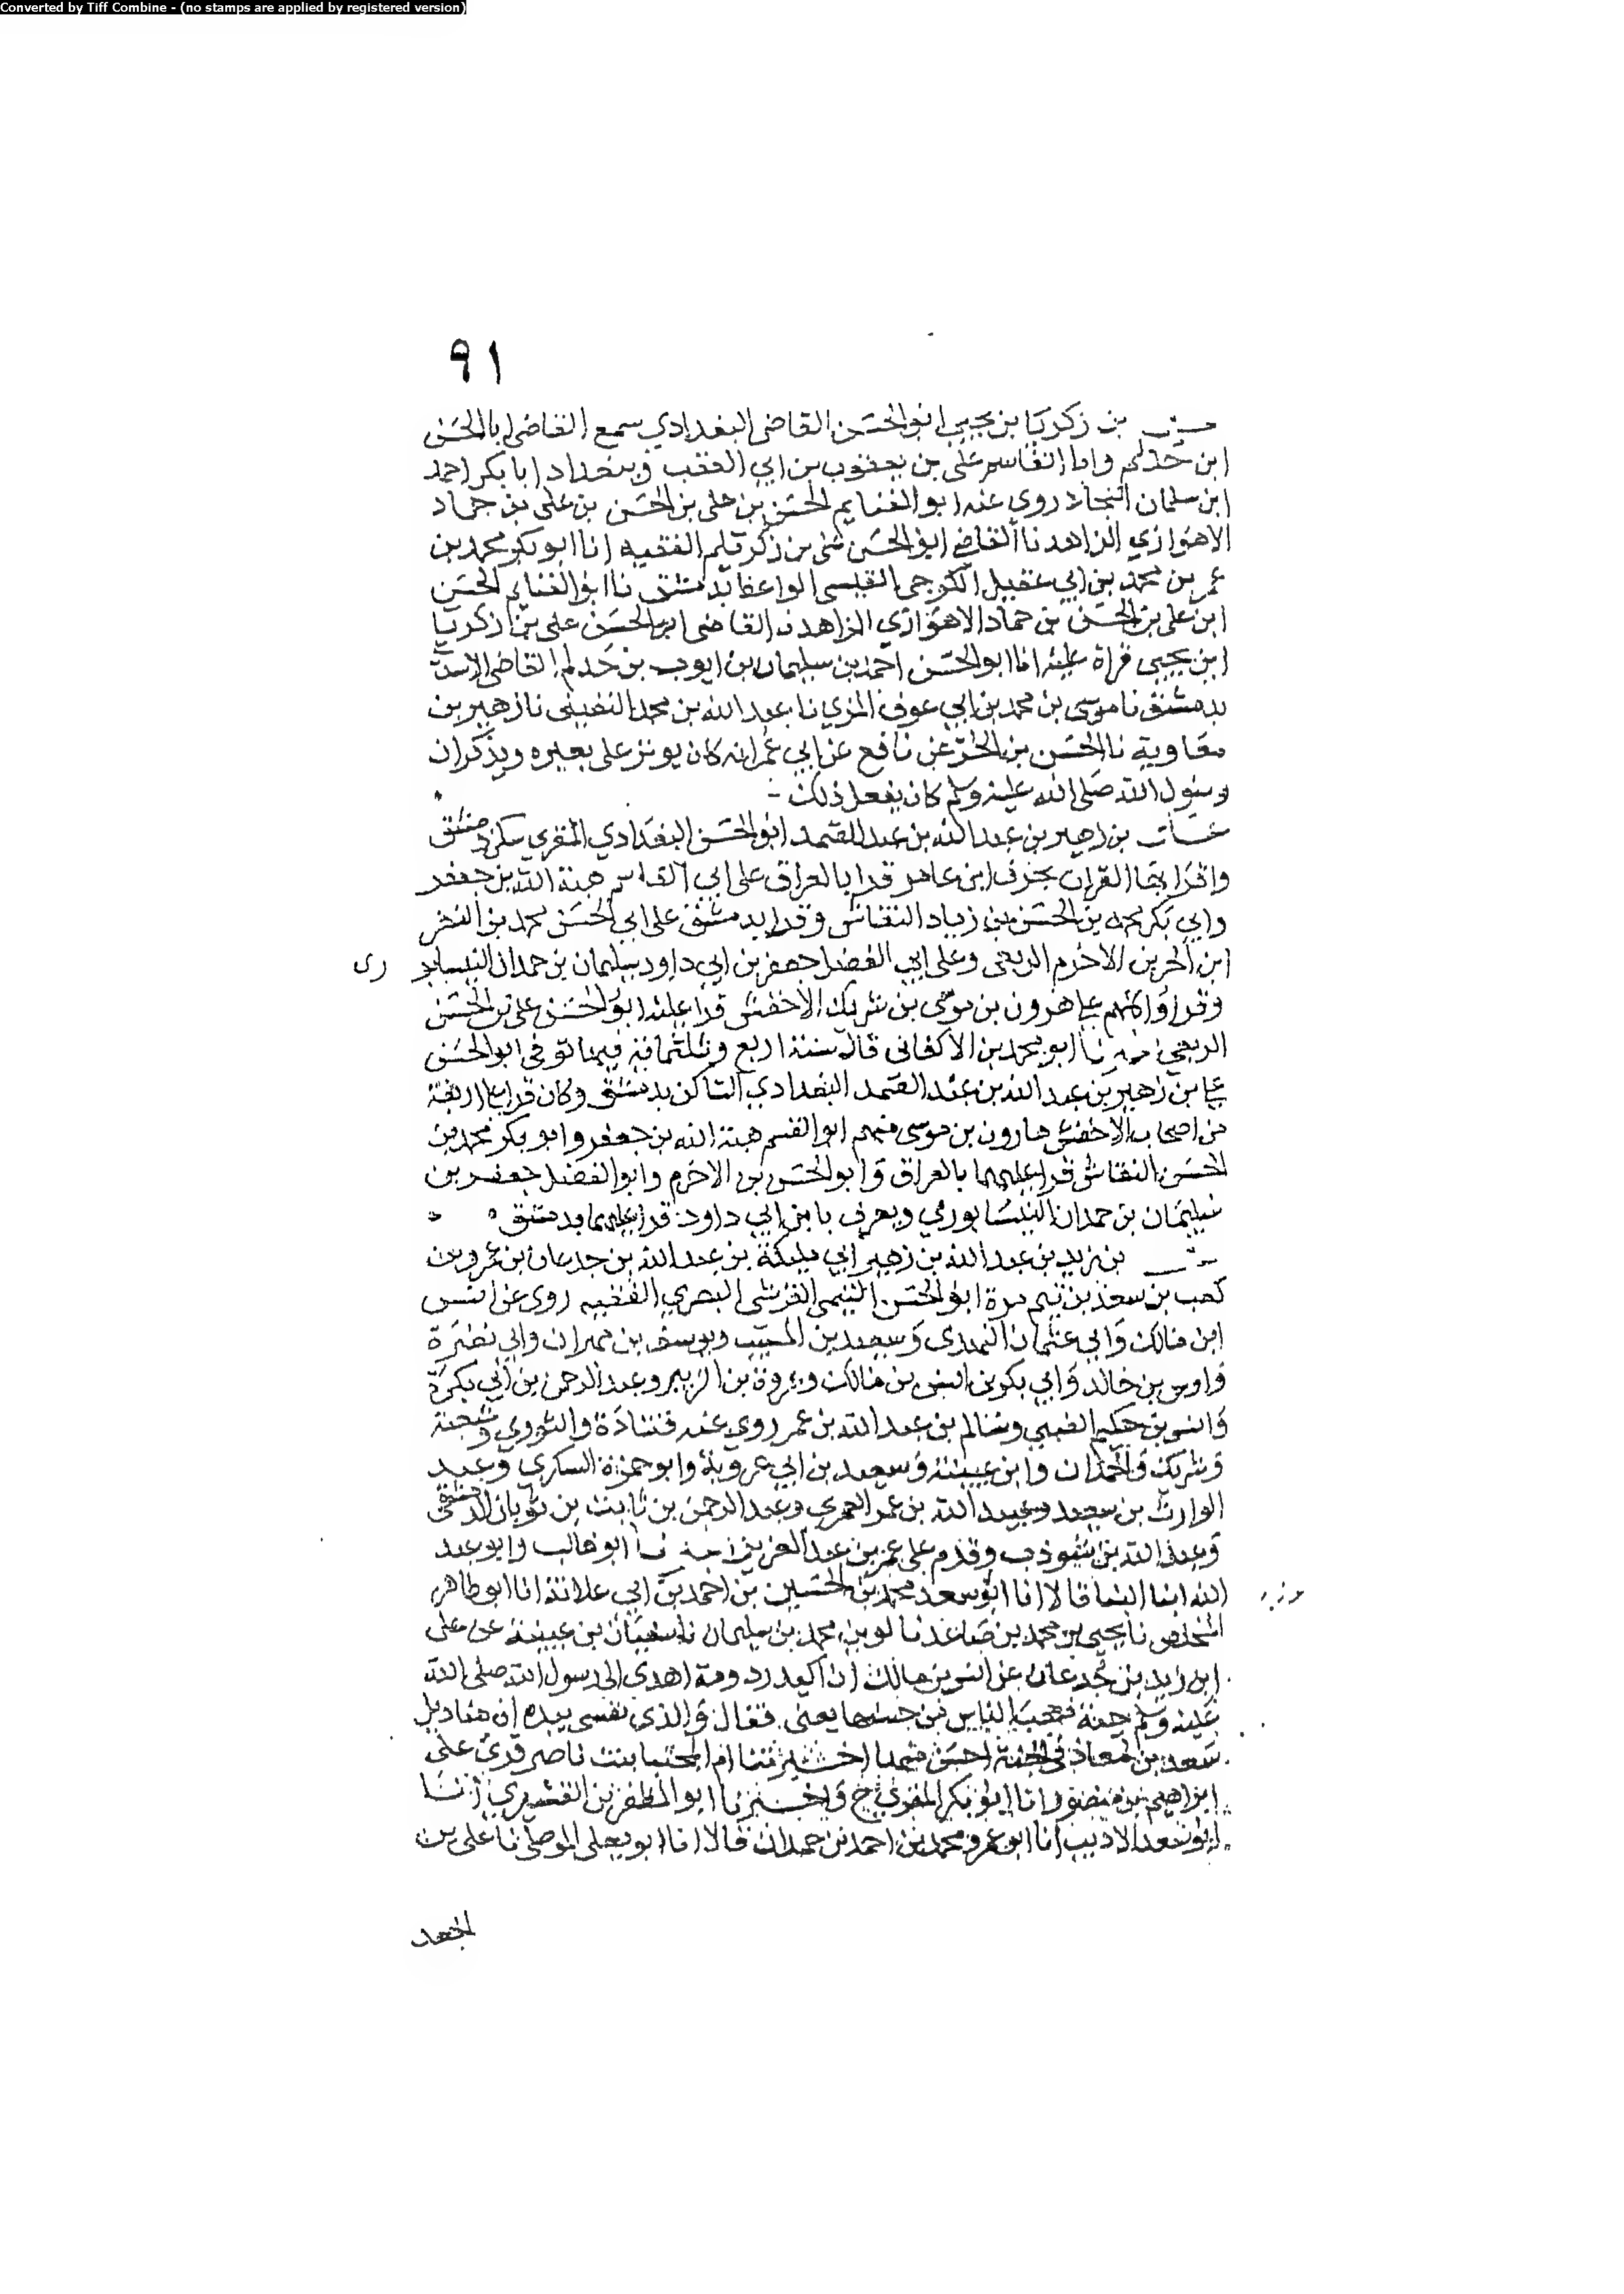 Converted by Tiff Combine - (no stamps are applied by registered version)
٩١
بن زكريا بن يحيى ابو الحسن القاضي البغدادي سمع القاضي ابا الحسن
ابن حذلم وابا القاسم علي بن يعقوب بن ابي العقب وببغداد ابا بكر احمد
ابن سلمان النجاد روى عنه ابو الغنايم الحسن بن علي بن الحسن بن علي بن حماد
الاهوازي الزاهد نا القاضي ابو الحسن بن زكر الفقيه انا ابو بكر محمد بن
عمر بن محمد بن ابي عقيل الكرجي القيسي الواعظ بدمشق نا ابو الغنايم الحسن
ابن علي بن الحسن بن حماد الاهوازي الزاهد نا القاضي ابو الحسن علي بن زكريا
ابن يحيى قراة عليه انا ابو الحسن احمد بن سليمان بن ايوب بن حذلم القاضي الاسدي
بدمشق نا موسى بن محمد بن ابي عوف المزي نا عبد الله بن محمد النفيلي نا زهير بن
معاوية نا الحسن بن الحر عن نافع عن ابي عمر انه كان يوتر على بعيره ويذكر ان
رسول الله صلى الله عليه وسلم كان يفعل ذلك
بن زهير بن عبد الله بن عبد الصمد ابو الحسن البغدادي المقري سكن دمشق
واقرا بها القران بحرف ابن عامر قرا بالعراق على ابي القاسم هبة الله بن جعفر
وابي بكر محمد بن الحسن بن زياد النقاش وقرا بدمشق على ابي الحسن محمد بن النضر
ابن الحر بن الاخرم الربعي وعلى ابي الفضل جعفر بن ابي داود سليمان بن حمدان النيسابو رى
وقراوا كلهم على هرون بن موسى بن شريك الاخفش قرا عليه ابو الحسن علي بن الحسن
الربعي نا ابو محمد بن الاكفاني قال سنة اربع وثلثمائة فيها توفي ابو الحسن
علي بن زهير بن عبد الله بن عبد الصمد البغدادي الساكن بدمشق وكان قرا على اربعة
من اصحاب الاخفش هارون بن موسى منهم ابو القسم هبة الله بن جعفر وابو بكر محمد بن
الحسن النقاش قرا عليهما بالعراق وابو الحسن بن الاخرم وابو الفضل جعفر بن
سليمان بن حمدان النيسابوري ويعرف بابن ابي داود قرا عليهما بدمشق
بن زيد بن عبد الله بن زهير ابي مليكة بن عبد الله بن جدعان بن عمرو بن
كعب بن سعد بن تيم مرة ابو الحسن التيمي القرشي البصري الفقيه روى عن انس
ابن مالك وابي عثمان النهدي وسعيد بن المسيب ويوسف بن مهران وابي نضرة
واوس بن خالد وابي بكر بن انس بن مالك وعروة بن الزبير وعبد الرحمن بن ابي بكرة
وانس بن حكيم الضبي وسالم بن عبد الله بن عمر روى عنه قتادة والثوري وشعبة
وشريك والحمادان وابن عيينة وسعيد بن ابي عروبة وابو حمزة السكري وعبد
الوارث بن سعيد وعبيد الله بن عمر العمري وعبد الرحمن بن ثابت بن ثوبان الدمشقي
وعبد الله بن شوذب وقدم على عمر بن عبد العزيز نا ابو غالب وابو عبد
الله ابنا البنا قالا انا ابو سعد محمد بن الحسين بن احمد بن ابي علانة انا ابو طاهر
المخلص نا يحيى بن محمد بن صاعد نا لوين محمد بن سليمان نا سفيان بن عيينة عن علي
ابن زيد بن جدعان عن انس بن مالك ان اكيدر دومة اهدى الى رسول الله صلى الله
عليه وسلم جبة فعجب الناس من حسنها يعني فقال والذي نفسي بيده ان مناديل
سعد بن معاذ في الجنة احسن منها اخبرتنا ام المجتبا بنت ناصر قرئ على
ابراهيم بن منصور انا ابو بكر المقري ح واخبرنا ابو المظفر بن القشيري انا
ابو سعد الاديب انا ابو عمرو محمد بن احمد بن حمدان قالا انا ابو يعلى الموصلي نا علي بن
الجعد